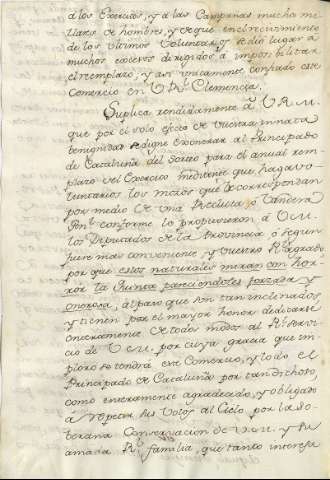 a los Exercitos, y a las Campañas muchos mi-
llares de hombres, y de que en el reemplazo
de los ultimos Voluntarios se dió lugar a
muchos excesos dirigidos a imposibilitar
el reemplazo, y asi unicamente confiado este
Comercio en V. Rl. Clemencia.
Suplica rendidamente a V. R. M.
que por el solo efecto de vuestra innata
benignidad se digne exonerar al Principado
de Cataluña del Sorteo para el anual reem-
plazo del Exercito mediante que haga vo-
luntarios los mozos que le correspondan
por medio de una Recluta, ó Vandera
Gnl. conforme lo propusieron a V. M.
los Diputados de la Provincia ó segun
fuere mas conveniente, y vuestro Rl. agrado
por que estos naturales miran con hor-
ror la Quinta pareciendoles forzada y
onerosa, al paso que son tan inclinados
y tienen por el mayor honor dedicarse
enteramente de todos modos al Rl. Servi-
cio de V. M. por cuya gracia que im-
plora se tendrá este Comercio, y todo el
Principado de Cataluña por tan dichoso,
como enteramente agradecido, y obligado
a repetir sus Votos al Cielo por la So-
berana Conservacion de V. M. y su
amada Rl. familia, que tanto interesa